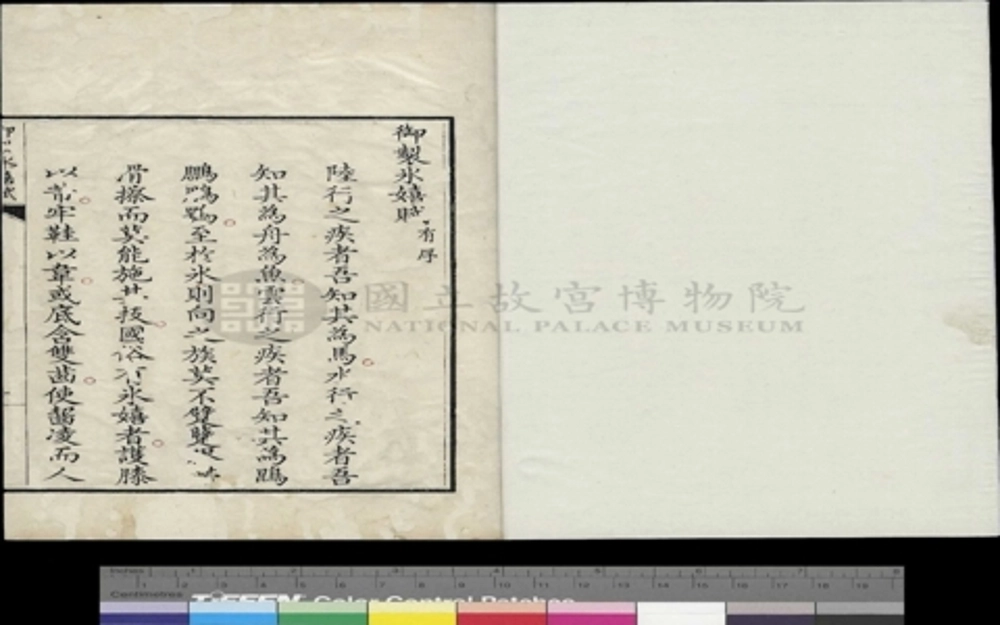 御製氷嬉賦有序
陸行之疾者吾知其為馬水行之疾者吾
知其為舟為魚雲行之疾者吾知其為鵰
鵬至於氷則向之族莫不躄躠
滑擦而莫能施其技國俗有氷嬉者護膝
以芾牢鞋以韋或底含雙齒使齧凌而人
國立故宮博物院
NATIONAL PALACE MUSEUM
Inches
Centimetres
TIFFEN Color Control Patches